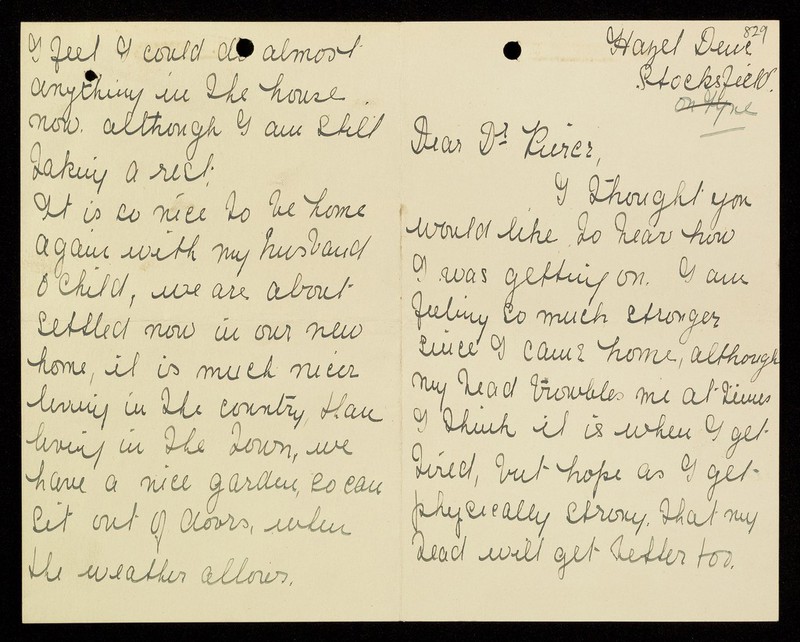 829
Hazel Dene
Stocksfield.
on Tyne
Dear Dr Pierce,
I thought you
would like to hear how
I was getting on. I am
feeling so much stronger
since I came home, although
my head trowbles me at times
I think it is when I get
tired, but hope as I get
physically strong, that my
head will get better too.
I feel I could do almost
anything in the house
now. although I am still
taking a rest.
It is so nice to be home
again with my husband
& child, we are about
settled now in our new
home, it is much nicer
living in the country, than
living in the town, we
have a nice garden, so can
sit out of doors, when
the weather allows.